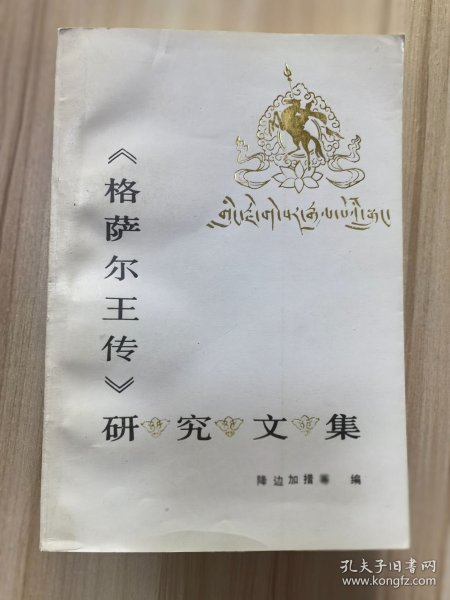 《格萨尔王传》
研究文集
降边加措等 编
孔夫子旧书网
www.kongfz.com